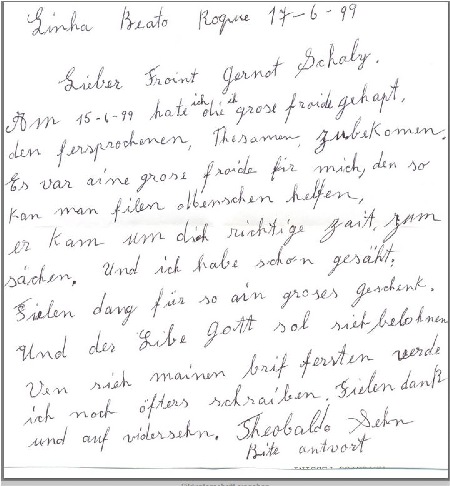 Linha Beato Roque 17-6-99
Lieber Froint Gernot Schaly.
Am 15-6-99 hate ich die grose froide gehapt,
den fersprochenen, Thesamen, zubekomen.
Es var aine grose froide für mich, den so
kan man filen Menschen helfen,
er kam um dich richtige zait, zum
sächen. Und ich habe schon gesäht.
Fielen dang für so ain groses geschenk.
Und der Libe Gott sol sieh belohnen
Ven sieh mainen brif fersten verde
ich noch öfters schraiben. Fielen dank
und auf vidersehn. Theobaldo Sehn
Bite antvort